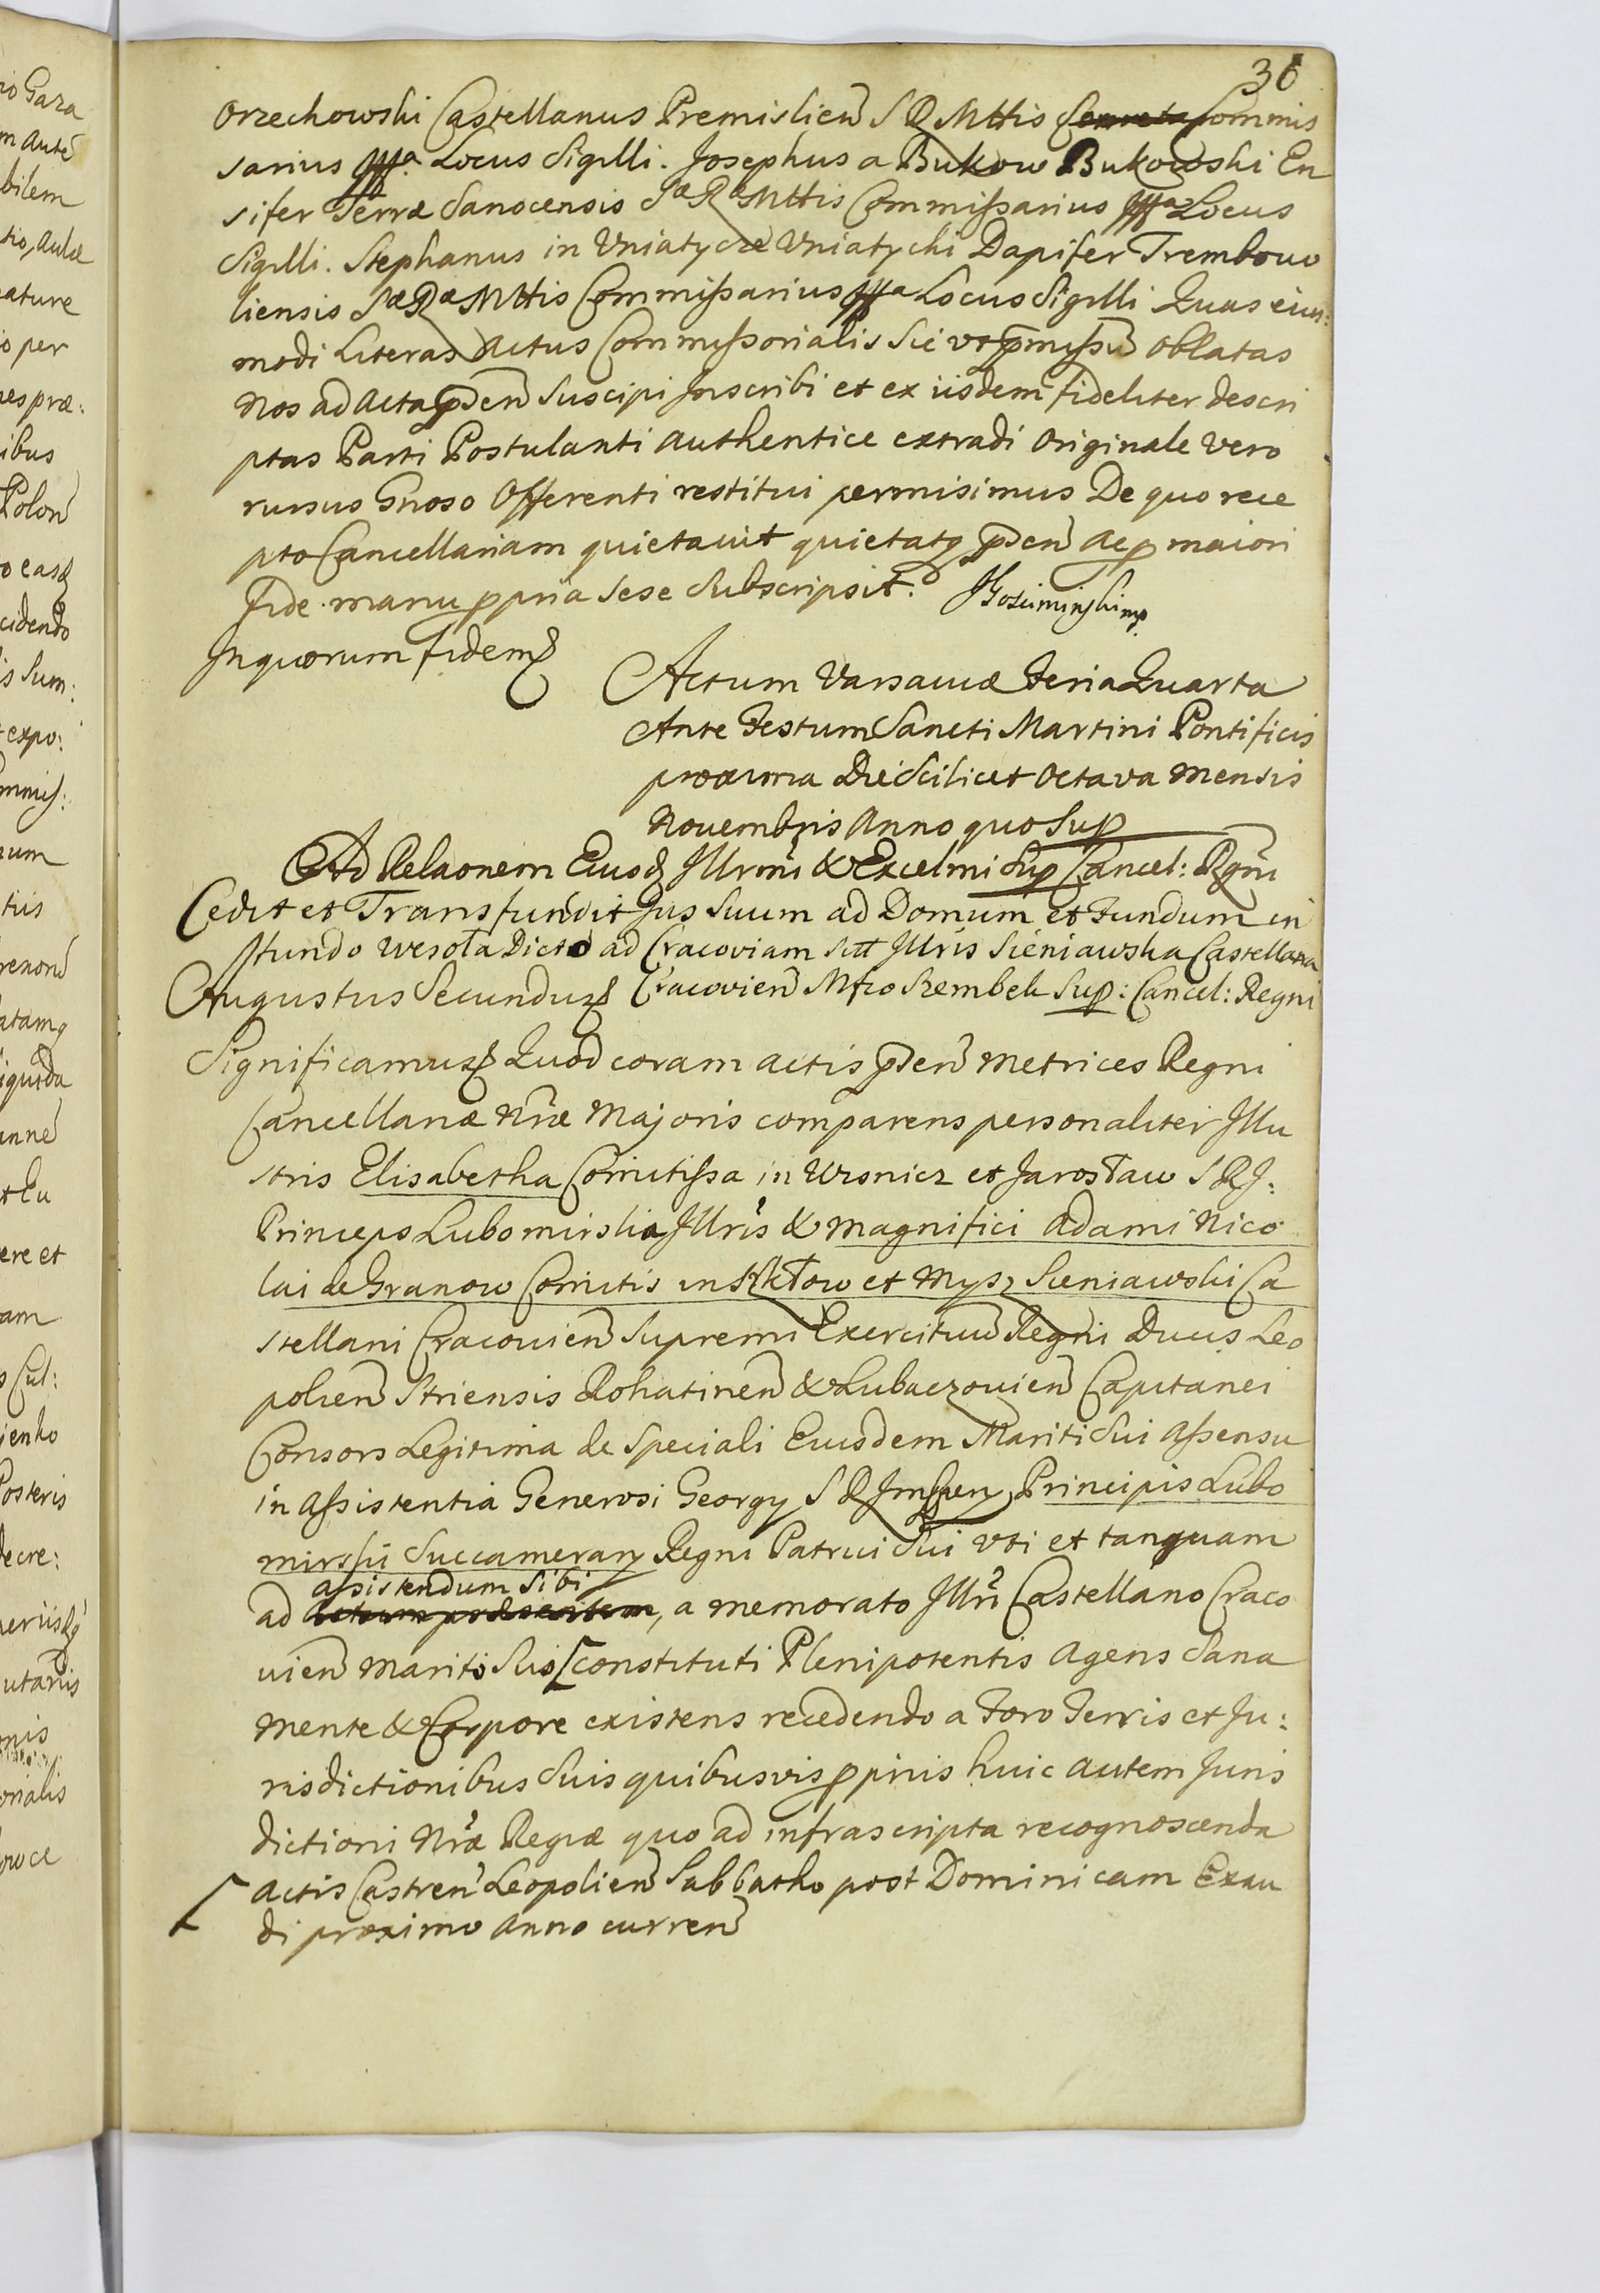 36
Orzechowski Castellanus Premislien S R Mttis Commis
sarius Locus Sigilli. Josephus a Bukow Bukowski En
sifer Terræ Sanocensis Sæ Ræ Mttis Commissarius Locus
Sigilli. Stephanus in Uniatycze Uniatycki Dapifer Trembow
liensis Sæ Ræ Mttis Commissarius Locus Sigilli Quas eius:
modi Literas Actus Commissorialis Sic ut pmissũ oblatas
Nos ad Acta pñtn Suscipi Inscribi et ex iisdem fideliter descri
ptas Parti Postulanti authentice extradi Originale vero
rursus Gnoso Offerenti restitui permisimus De quo rece
pto Cancellariam quietavit quietatq pñtn Ac p maiori
fide manu ppria sese Subscripsit.
In quorum fidem
Actum Varsaviæ Feria Quarta
Ante Festum Sancti Martini Pontificis
proxima Die Scilicet Octava Mensis
Novembris Anno quo Sup
Ad Relaonem Eiusd Illrmi & Excelmi Sup Cancel: Rgni
Cedit et Transfundit Jus Suum ad Domum et Fundum in
Fundo Wesoła Dicto ad Cracoviam Illris Sieniawska Castellana
Augustus Secundus Cracovien Mfco Szembek Sup: Cancel: Regni
Significamus Quod coram actis pñtn Metrices Regni
Cancellariæ Nræ Majoris comparens personaliter Illu
stris Elisabetha Comitissa in Wisnicz et Jarosław S R J:
Princeps Lubomirska Illris & Magnifici Adami Nico
lai de Granow Comitis in Szkłow et Mysz Sieniawski Ca
stellani Cracovien Supremi Exercituũ Regni Ducis Leo
polien Striensis Rohatinen & Lubaczovien Capitanei
Consors Legitima de Speciali Eiusdem Mariti Sui Assensu
in Assistentia Generosi Georgy S R Principis Lubo
mirskij Succamerary Regni Patrui Sui uti et tanquam
assistendum sibi
ad actum præsentem, a memorato Illri Castellano Craco
vien Marito Suo [constituti Plenipotentis Agens Sana
Mente & Corpore existens recedendo a Foro Terris et Ju:
risdictionibus Suis quibusvis pprijs huic autem Juris
dictioni Nræ Regiæ quo ad infrascripta recognoscenda
[ Actis Castren Leopolien Sabbatho post Dominicam Exau
di proximo Anno curren